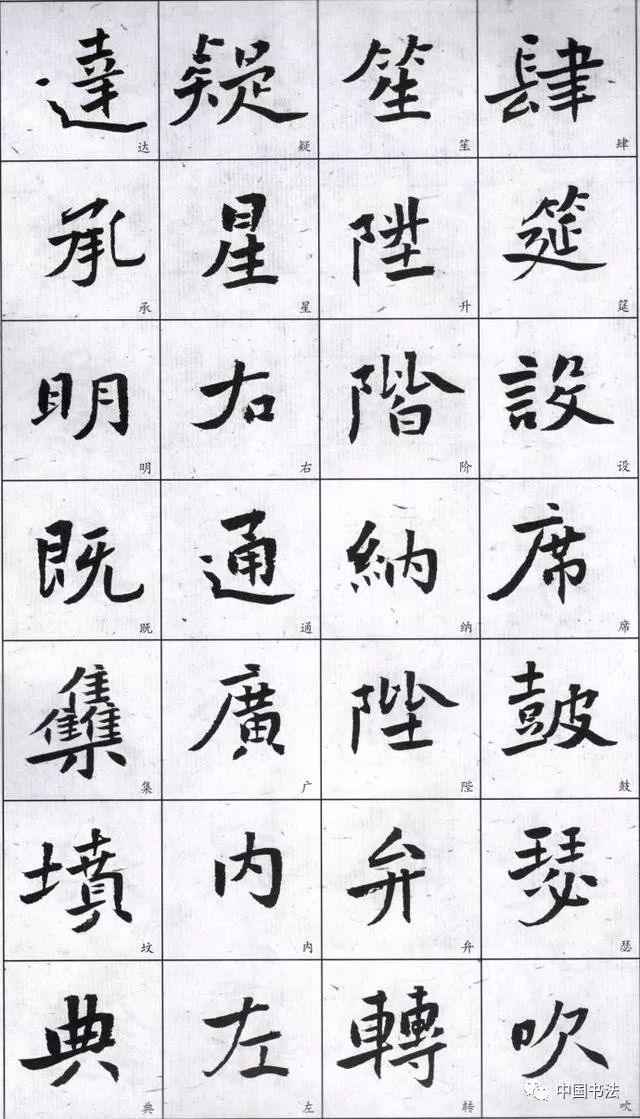 肆筵設席皷瑟吹
肆筵设席鼓瑟吹
笙陞階納陛弁轉
笙升阶纳陛弁转
疑星右通廣内左
疑星右通广内左
達承明既雧墳典
达承明既集坟典
中国书法